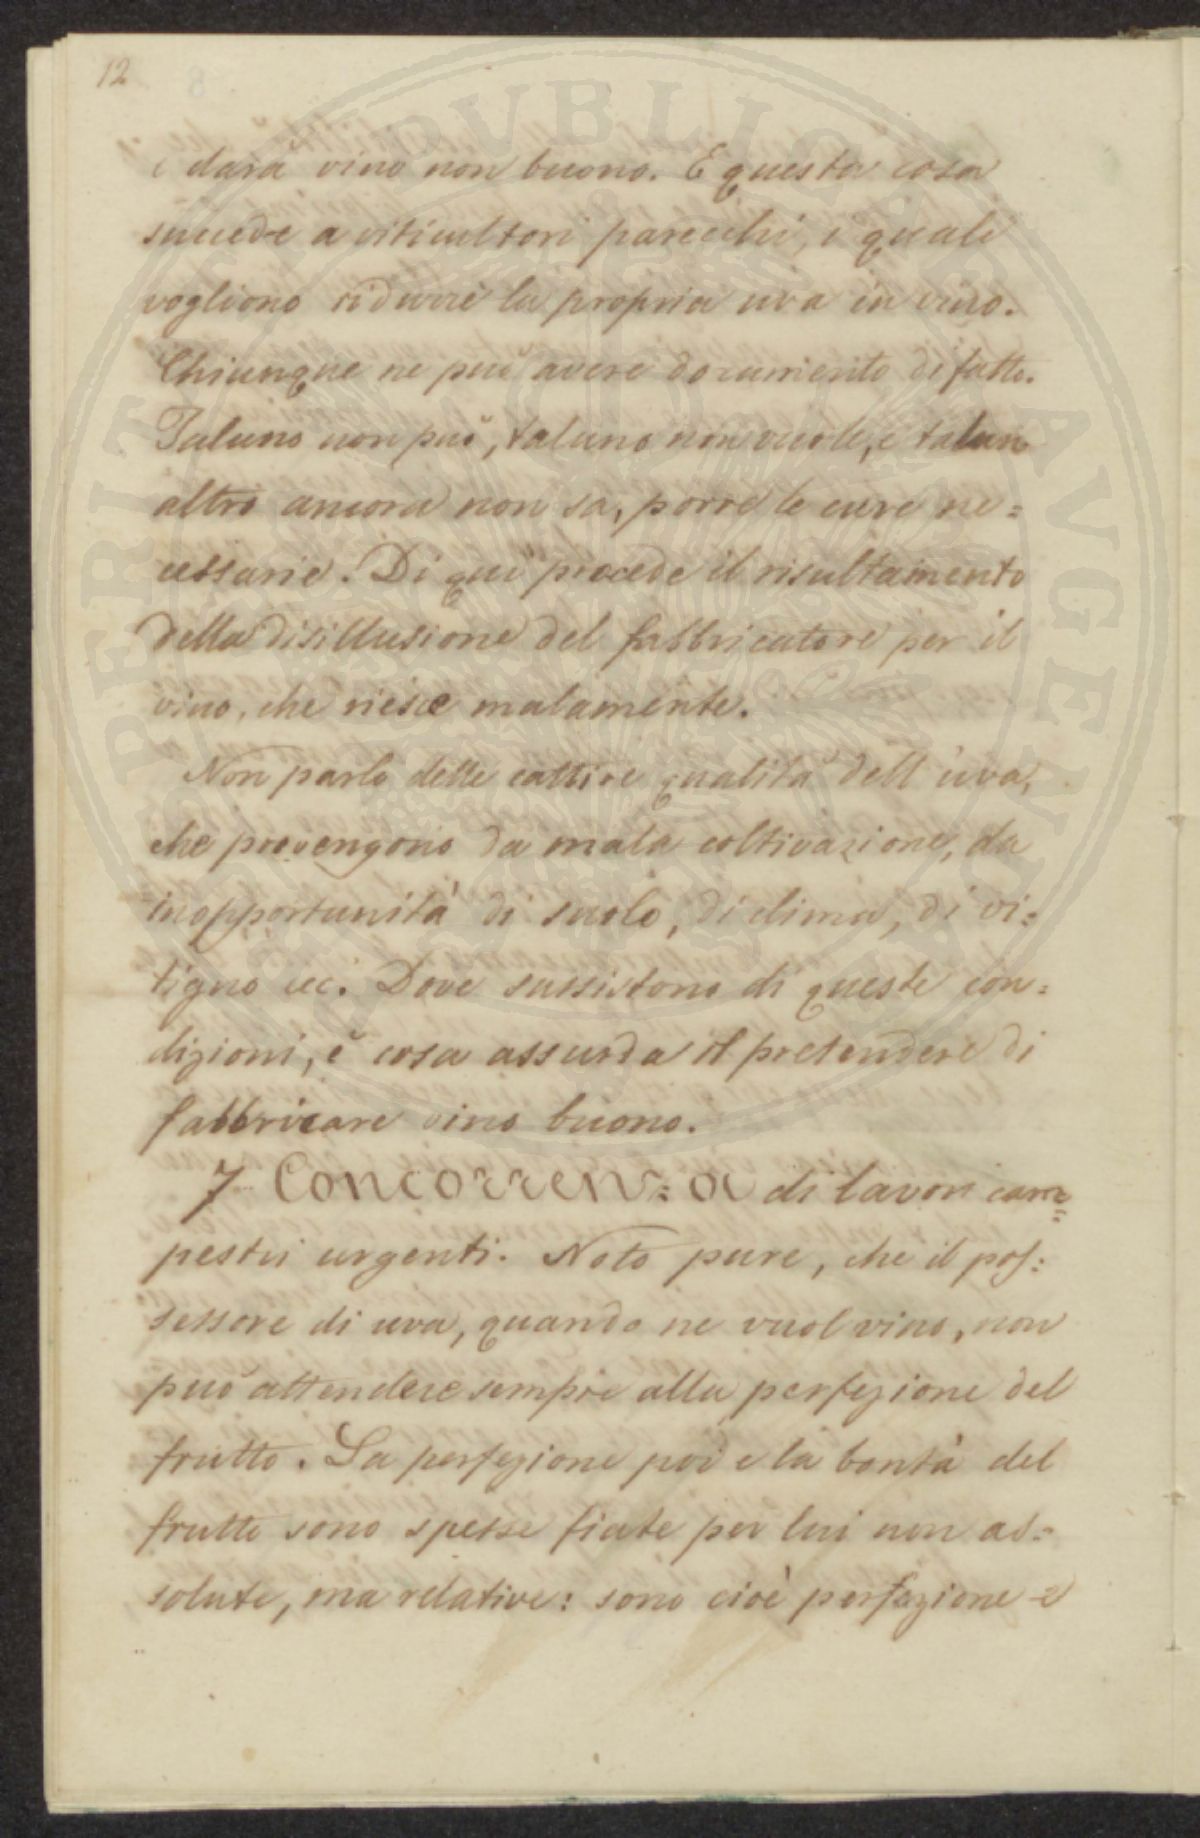 12
e darà vino non buono. E questa cosa
succede a viticultori parecchi, i quali
vogliono ridurre la propria uva in vino.
Chiunque ne può avere documento di fatto.
Taluno non può, taluno non vuole, e talun
altro ancora non sa, porre le cure ne=
cessarie. Di qui procede il risultamento
della disillusione del fabbricatore per il
vino, che riesce malamente.
Non parlo delle cattive qualità dell'uva,
che provengono da mala coltivazione, da
inopportunità di suolo, di clima, di vi=
tigno ecc. Dove sussistono di queste con=
dizioni, è cosa assurda il pretendere di
fabbricare vino buono.
7 Concorrenza di lavori cam=
pestri urgenti. Noto pure, che il pos=
sessore di uva, quando ne vuol vino, non
può attendere sempre alla perfezione del
frutto. La perfezione poi e la bontà del
frutto sono spesse fiate per lui non as=
solute, ma relative: sono cioè perfezione e
PERITI PVBLICAE AVGENDAE